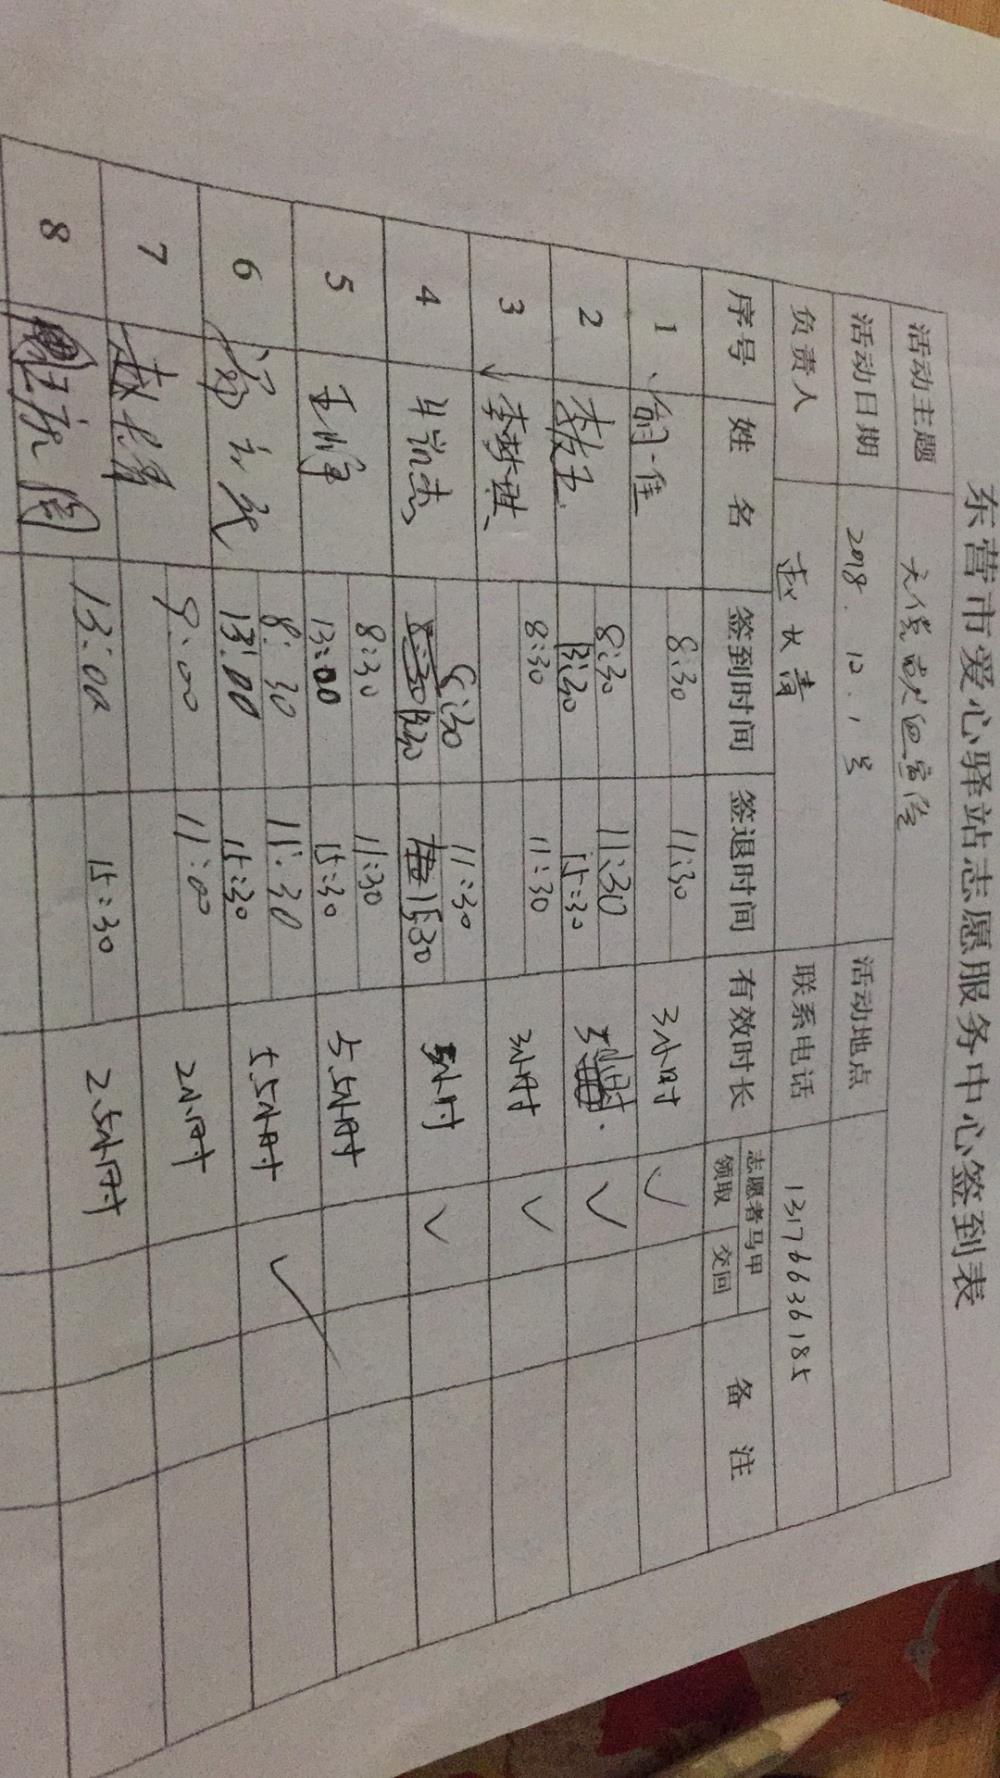 东营市爱心驿站志愿服务中心签到表
活动主题 无偿献血宣传 活动地点
活动日期 2018.12.1号
负责人 赵长青 联系电话 13176636185
序号 姓名 签到时间 签退时间 有效时长 志愿者马甲 备注
领取 交回
1 8:30 11:30 3小时 ✓
2 8:30 11:30 ✓
13:30 15:30
3 李梦琪 8:30 11:30 3小时 ✓
4 8:30 11:30 5小时 ✓
13:30 15:30
5 8:30 11:30 5.5小时
13:00 15:30
6 8:30 11:30 5.5小时 ✓
13:00 15:30
7 9:00 11:00 2小时
8 13:00 15:30 2.5小时